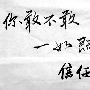 你敢不敢
一如
信任